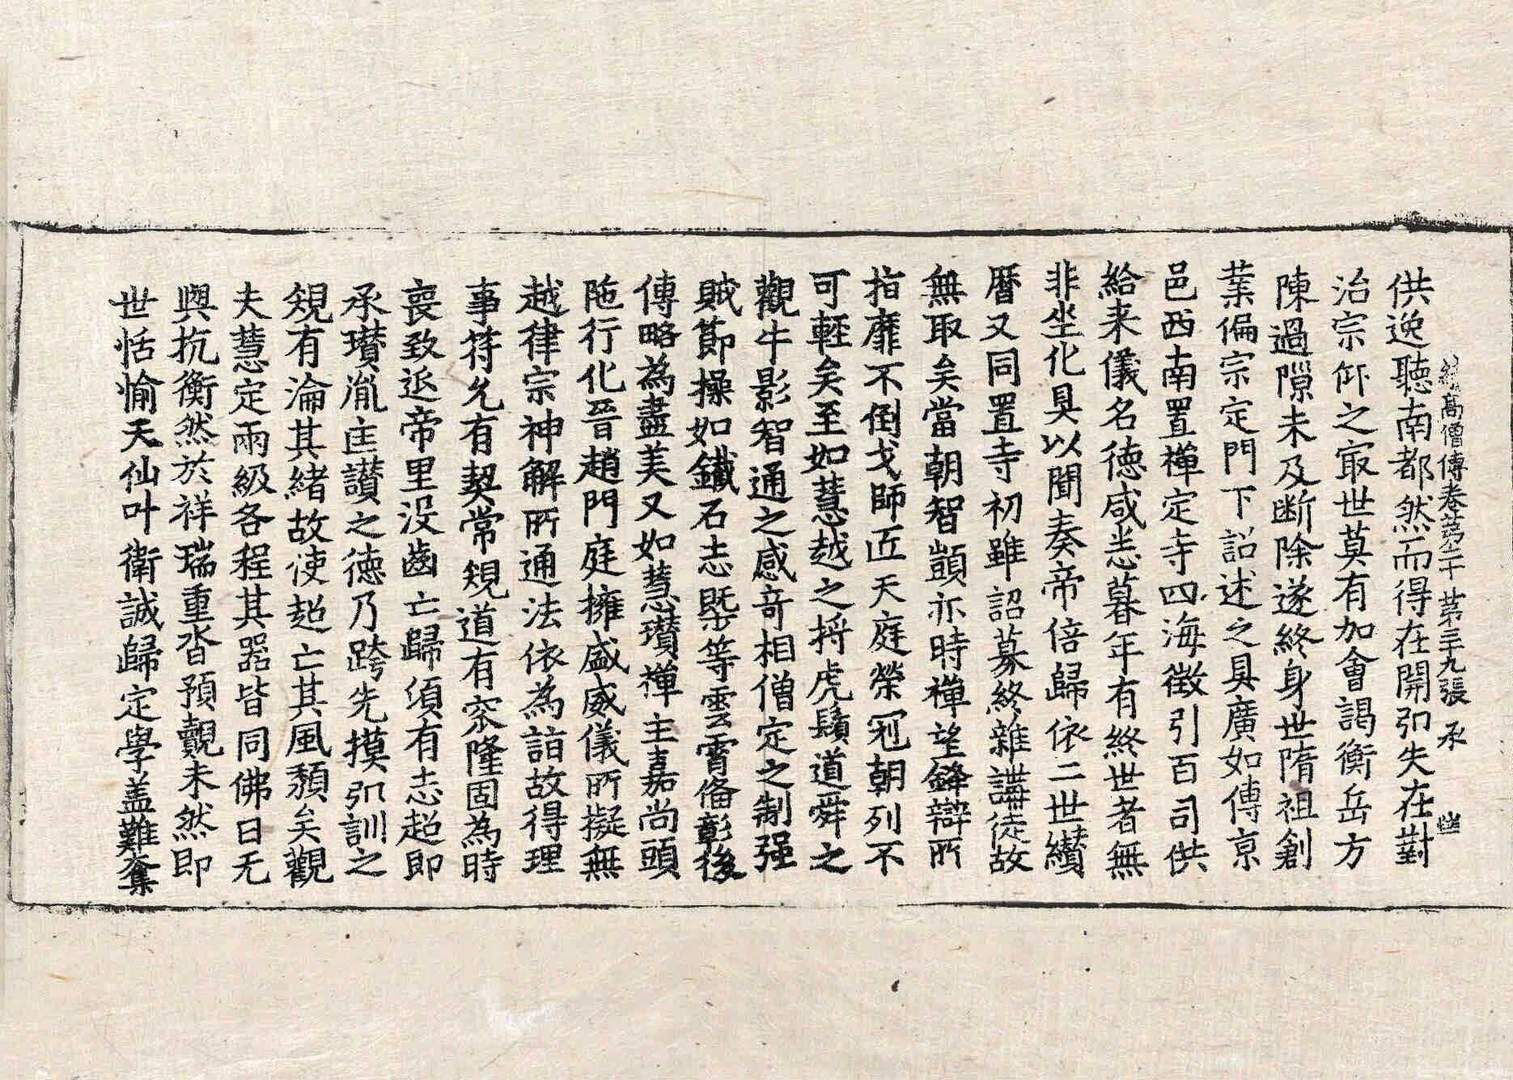 續高僧傳卷第二十 第三十九張 承
供逸聽南都然而得在開引失在對
治宗仰之寂世莫有加會謁衡岳方
陳過隙未及断除遂終身世隋祖創
業偏宗定門下詔述之具廣如傳京
邑西南置禅定寺四海徵引百司供
給来儀名德咸悉暮年有終世者無
非坐化具以聞奏帝倍歸依二世纘
曆又同置寺初雖詔募終雜講徒故
無取矣當朝智顗亦時禅望鋒辯所
指靡不倒戈師匠天庭榮冠朝列不
可輕矣至如慧越之捋虎鬚道舜之
觀牛影智通之感奇相僧定之制强
賊節操如鐵石志槩等雲霄俻彰後
傳略為盡美又如慧瓚禅主嘉尚頭
陁行化晉趙門庭擁盛威儀所擬無
越律宗神解所通法依為詣故得理
事符允有契常䂓道有窊隆固為時
喪致返帝里没齒亡歸頃有志超即
承瓚胤匡讃之德乃跨先摸弘訓之
䂓有淪其緒故使超亡其風頽矣觀
夫慧定兩級各程其器皆同佛日无
與抗衡然於祥瑞重沓預覿未然即
世恬愉天仙叶衛誠歸定學盖難奪